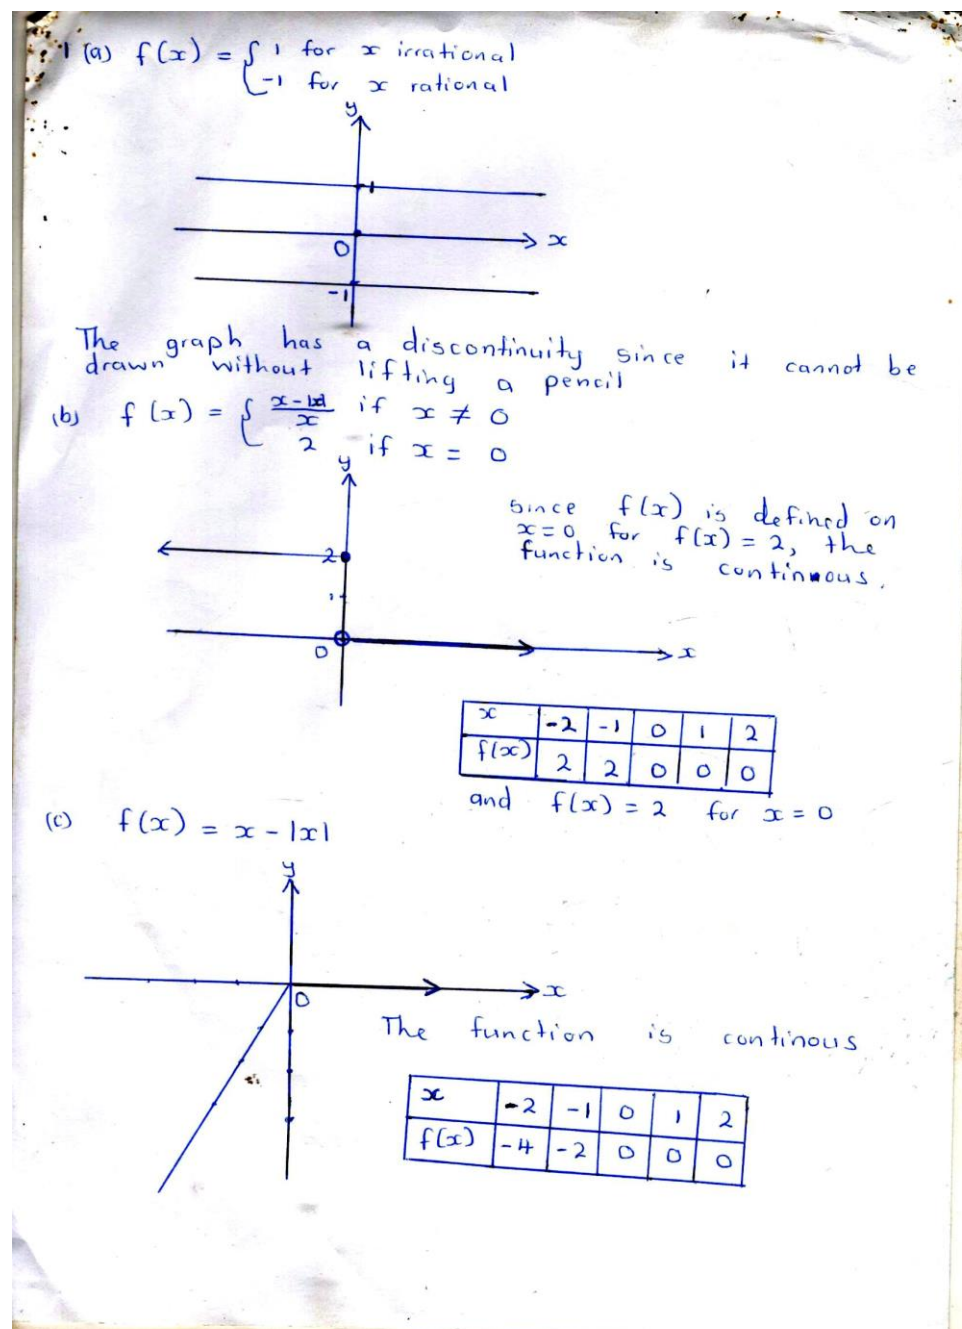 1 (a) f(x) = { 1 for x irrational
-1 for x rational
y
1
0 x
-1
The graph has a discontinuity since it cannot be
drawn without lifting a pencil
(b) f(x) = { x-|x|/x if x ≠ 0
2 if x = 0
y
since f(x) is defined on
x=0 for f(x) = 2, the
function is continuous.
2
1
0 x
x -2 -1 0 1 2
f(x) 2 2 0 0 0
and f(x) = 2 for x = 0
(c) f(x) = x - |x|
y
0 x
The function is continous
x -2 -1 0 1 2
f(x) -4 -2 0 0 0